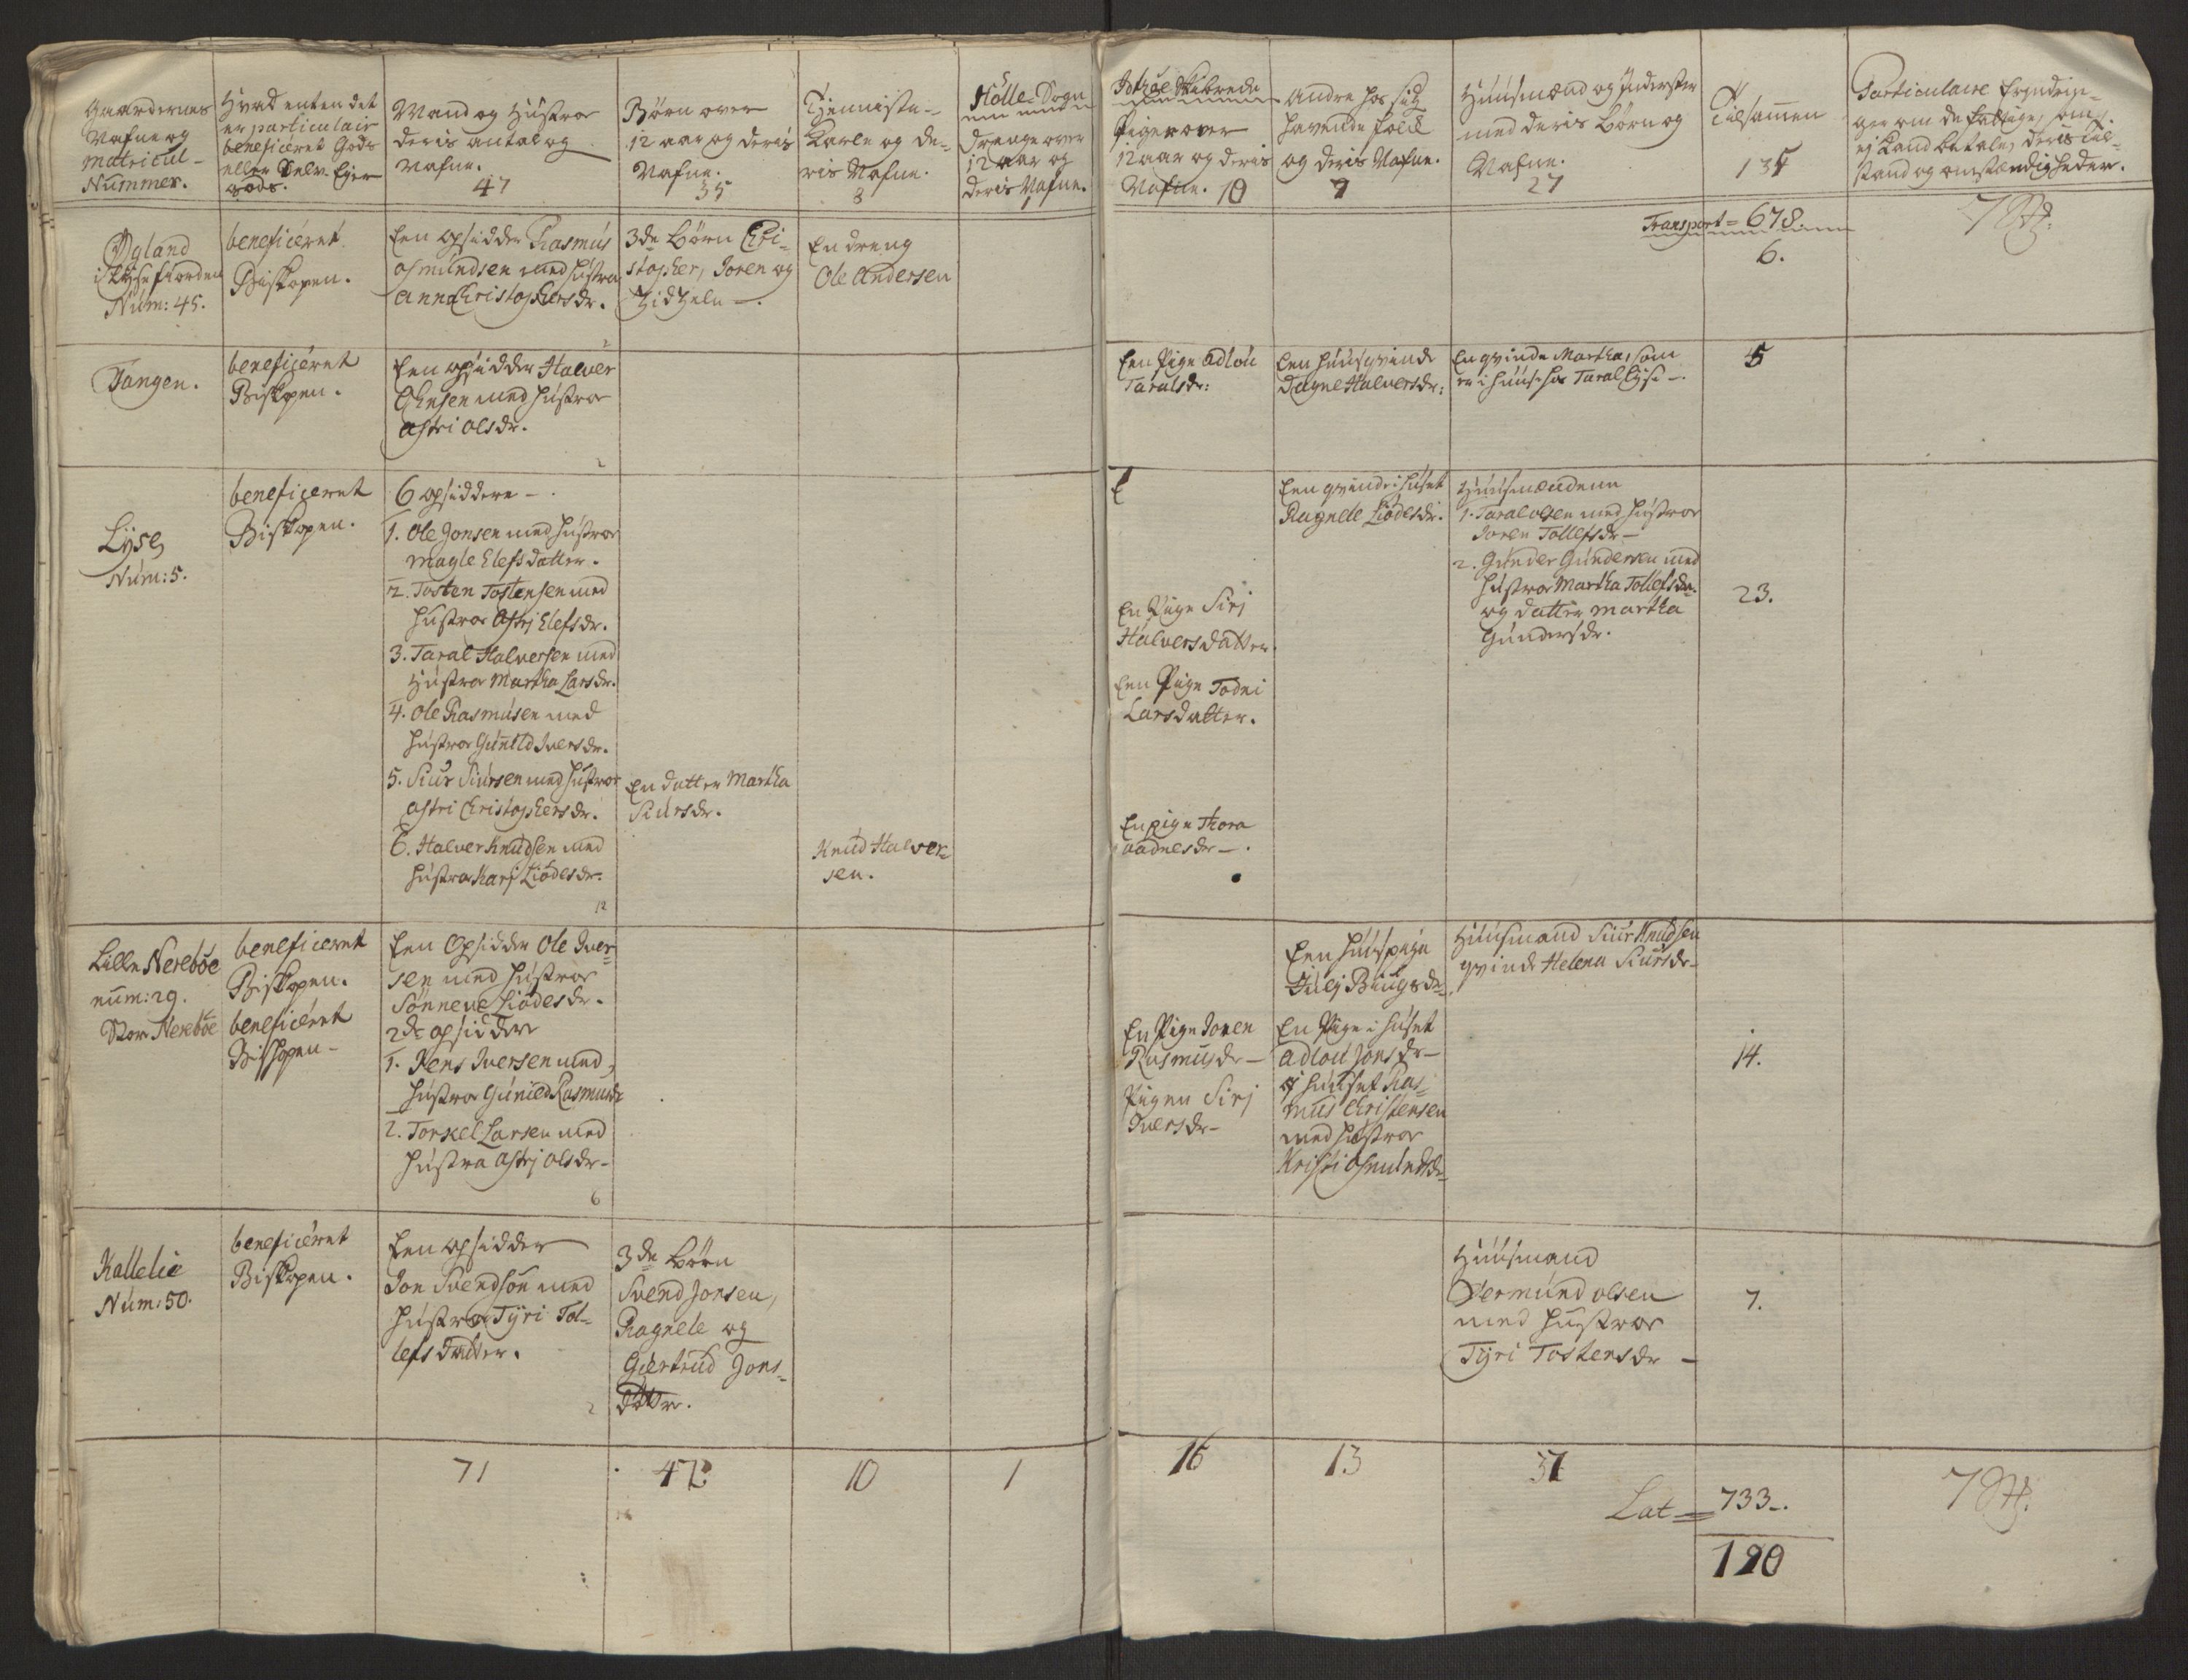 Gaardernes
Nafne og
Matricul-
Nummer.
Hvad enten det
er particulair
beneficeret Gods
eller Selv-Ejer
gods.
Mand og Hustroe
deris antal og
Nafne.
47
Børn over
12 aar og deris
Nafne.
35
Tjenniste-
Karle og de-
ris Nafne.
8
Hölle-Sogn
Drenge over
12 aar og
deris Nafne.
1
Idthøe Skibrede
Piger over
12 aar og deris
Nafne. 10
Andre hos sig
havende folck
og deris Nafne.
7
Huusmænd og Inderster
med deris Børn og
Nafne.
27
Tilsamen
135
Particulaire Erindrin-
ger om de fattige, som
ej kand betale, deris til-
stand og omstændigheder.
Transport = 678.
Øgland
i Lysefiorden
Num: 45.
beneficeret
Biskopen.
Een opsidder Rasmus
Osmundsen med hustroe
Anna Christophersdr.
2
3de Børn Chri-
stopher, Joren og
Zidzele -.
En dreng
Ole Andersen
6.
Tangen.
beneficeret
Biskopen.
Een opsidder Halver
Ellefsen med hustroe
Astri Olsdr.
2
Een Pige Adlou
Taralsdr:
Een huusqvinde
Dagne Halversdr:
En qvinde Martha, som
er i huus hos Taral Lyse -.
5
Lyse,
Num: 5.
beneficeret
Biskopen.
6 opsiddere -.
1. Ole Jonsen med hustroe
Magle Elefsdatter.
2. Tosten Tostensen med
hustroe Astrj Elefsdr.
3. Taral Halversen med
Hustroe Martha Larsdr.
4. Ole Rasmusen med
hustroe Gunild Iversdr.
5. Siur Siursen med hustroe
Astri Christophersdr.
6. Halver Knudsen med
hustroe Karj Liodesdr.
12
En datter Martha
Siursdr.
Knud Halver-
sen.
E
En Pige Sirj
Halversdatter
Een Pige Todni
Larsdatter.
En pige Thora
Aadnesdr -.
Een qvinde i huset
Ragnele Liodesdr.
Huusmændene
1. Taral Olsen med hustroe
Joren Tollefsdr -
2. Gunder Gundersen med
hustroe Martha Tollefsdr.
og datter Martha
Gundersdr.
23.
Lille Nerebøe
num: 29.
Stor Nerebøe
beneficeret
Biskopen.
beneficeret
Biskopen -
Een Opsidder Ole Iver-
sen med hustroe
Sønneve Liodesdr.
2de opsiddere
1. Rens Iversen med
hustroe Gunild Rasmusdr
2. Torkel Larsen med
hustroe Astrj Olsdr -
6
En Pige Joren
Rasmusdr -
Pigen Sirj
Iversdr -
Een huuspige
En Pige i huset
Adlou Jonsdr -
i huuset Ras-
mus Christensen
med hustroe
Kristi Osmundsdr
Huusmand Siur Knudsen
qvinde Helena Siursdr -
14.
Kallelie
Num: 50.
beneficeret
Biskopen.
Een opsidder
Jon Svendsøn med
hustroe Tyri Tol-
lefsdatter.
2
3de Børn
Svend Jonsen,
Ragnele og
Giertrud Jons-
Døttre.
Huusmand
Vermund Olsen
med hustroe
Tyri Tostensdr -
7.
71
42
10
1
16
13
37
Lat = 733-.
190